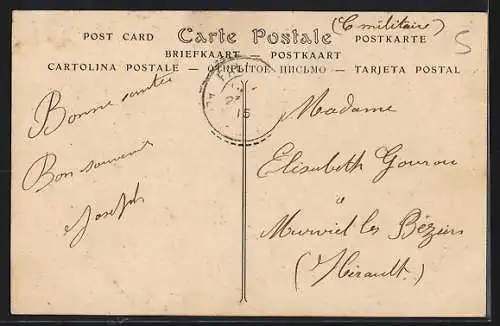 (C militaire)
POST CARD Carte Postale POSTKARTE
BRIEFKAART — POSTKAART
CARTOLINA POSTALE — ОТКРЫТОЕ ПИСЬМО — TARJETA POSTAL
5
15
Bonne santée
Bon souvenir
Joseph
Madame
Elisabeth Gourou
à
Murviel les Béziers
(Hérault)